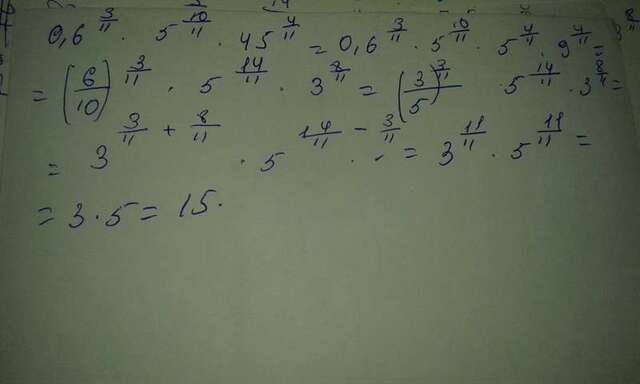 0,6^(3/11) · 5^(10/11) · 45^(4/11) = 0,6^(3/11) · 5^(10/11) · 5^(4/11) · 9^(4/11) =
= (6/10)^(3/11) · 5^(14/11) · 3^(8/11) = (3/5)^(3/11) · 5^(14/11) · 3^(8/11) =
= 3^(3/11 + 8/11) · 5^(14/11 - 3/11) · . = 3^(11/11) · 5^(11/11) =
= 3 · 5 = 15.